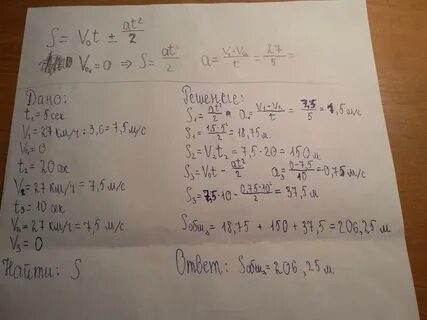 S = V₀t ± at²/2
V₀₁ = 0 ⇒ S = at²/2   a = V₁-V₀₁/t = 27/5 =
Дано:
t₁ = 5 сек
V₁ = 27 км/ч : 3,6 = 7,5 м/с
V₀ = 0
t₂ = 20 сек
V₂ = 27 км/ч = 7,5 м/с
t₃ = 10 сек
V₀₃ = 27 км/ч = 7,5 м/с
V₃ = 0
Найти: S
Решение:
S₁ = at²/2   a₁ = V₁-V₀₁/t = 7,5/5 = 1,5 м/с
S₁ = 1,5·5²/2 = 18,75 м.
S₂ = V₂t₂ = 7,5·20 = 150 м
S₃ = V₀t - at²/2   a₃ = 0-7,5/10 = 0,75 м/с
S₃ = 7,5·10 - 0,75·10²/2 = 37,5 м
Sобщ = 18,75 + 150 + 37,5 = 206,25 м
Ответ: Sобщ = 206,25 м.